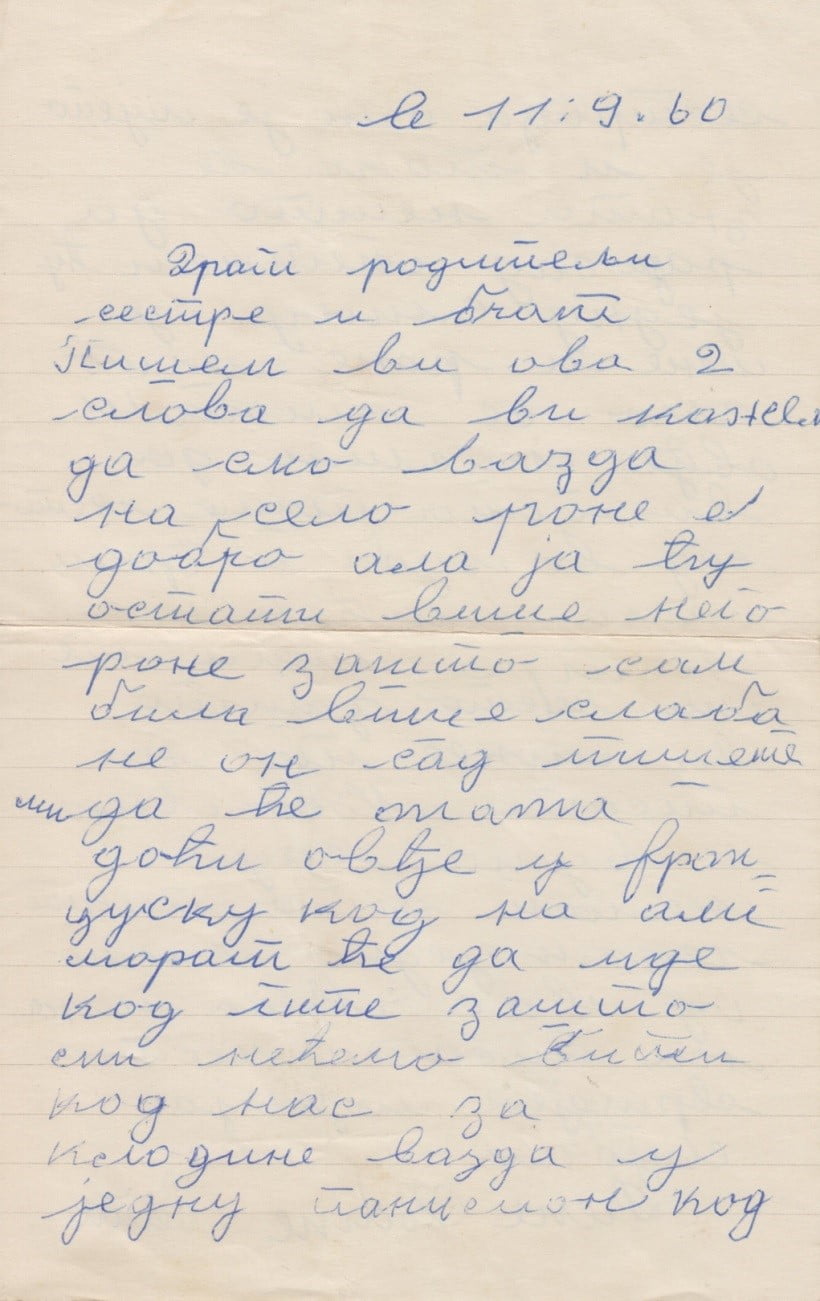 le 11.9.60
Драги родитељи
сестре и брат
Пишем ви ова 2
слова да ви кажем
да смо вазда
на село роне е
добро ала ја ћу
остати више него
роне зашто сам
била више слаба
не он сад пишете
ми да ће тата
доћи овђе у фран=
цуску код на али
морат ће да иде
код зашто
ми нећемо бити
код нас за
клодине вазда у
једну пансион код